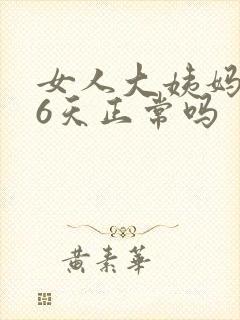 女人大姨妈
6天正常吗
黄素华